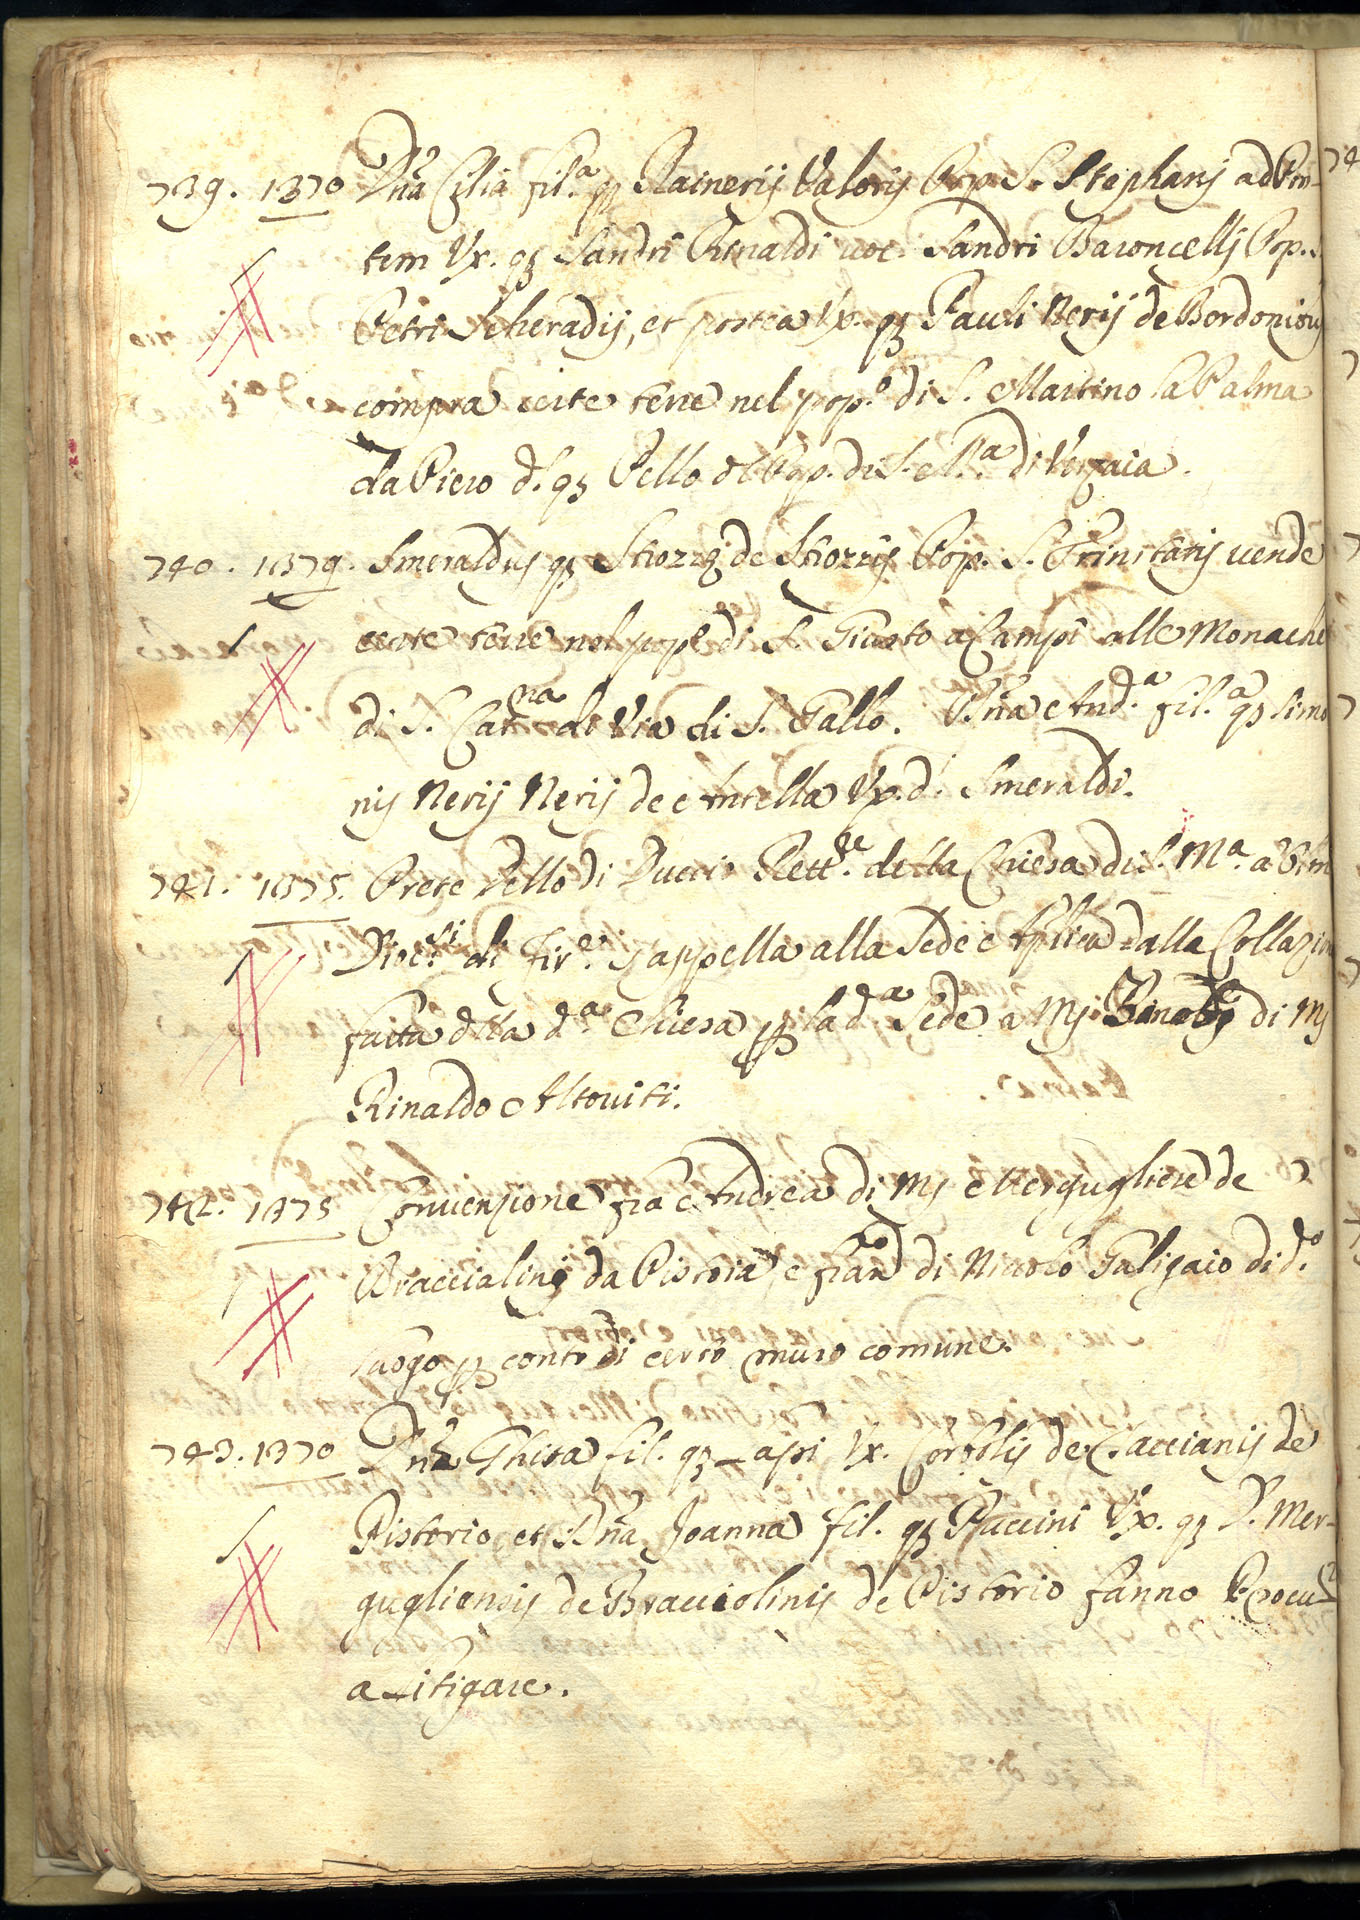 739. 1370 Dña Cilia fil.ª qz Rainerij Valorij Pop. S. Stephanj ad Pon-
tem Vx. qz Sandri Rinaldi uoc. Sandri Baroncellj Pop. S.
Petri Scheradij, et postea Vx. qz Pauli Nerij de Bordonibus
compra certe terre nel pop.º di S. Martino la Palma
da Piero d. qz Pello del Pop. di S. M.ª di Verzaia.
740. 1379. Smeraldus qz Stiozzi de Stiozzis Pop. S. Trinitatis uende
certe terre nel popº di S. Giusto a Campi alle Monache
di S. Catna di Via di S. Gallo. Dña And.ª fil.ª qz Simo
nis Nerij Nerij de Antella Vx. d. Smeraldi.
741. 1375. Prete Pello di Duccio Rett.re della Chiesa di S. Mª. a
Dioc.si di Fir.e s'appella alla Sede Aplica dalla Collazione
fatta della d.ª Chiesa p la d.ª Sede a Mj di Mj
Rinaldo Altouiti.
742. 1375 Conuenzione fra Andrea di Mj Mergugliese de
Bracciolinis da Pistoia, e Franº di Nicolò Galigaio di d.º
luogo p conto di certo muro comune.
743. 1370 Dña Ghita fil. qz Lapi Vx. de Caccianis de
Pistorio, et Dña Joanna fil. qz Puccini Vx. qz D. Mer-
gugliensis de Bracciolinis de Pistorio fanno Procu.re
a Litigare.